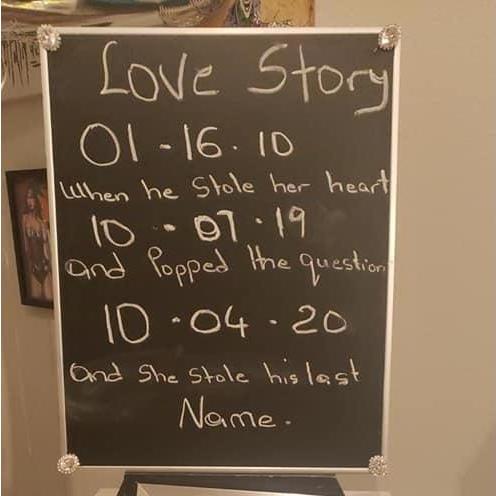 Love Story
01-16.10
When he Stole her heart
10-07.19
and Popped the question
10.04.20
and She Stole his last
Name.